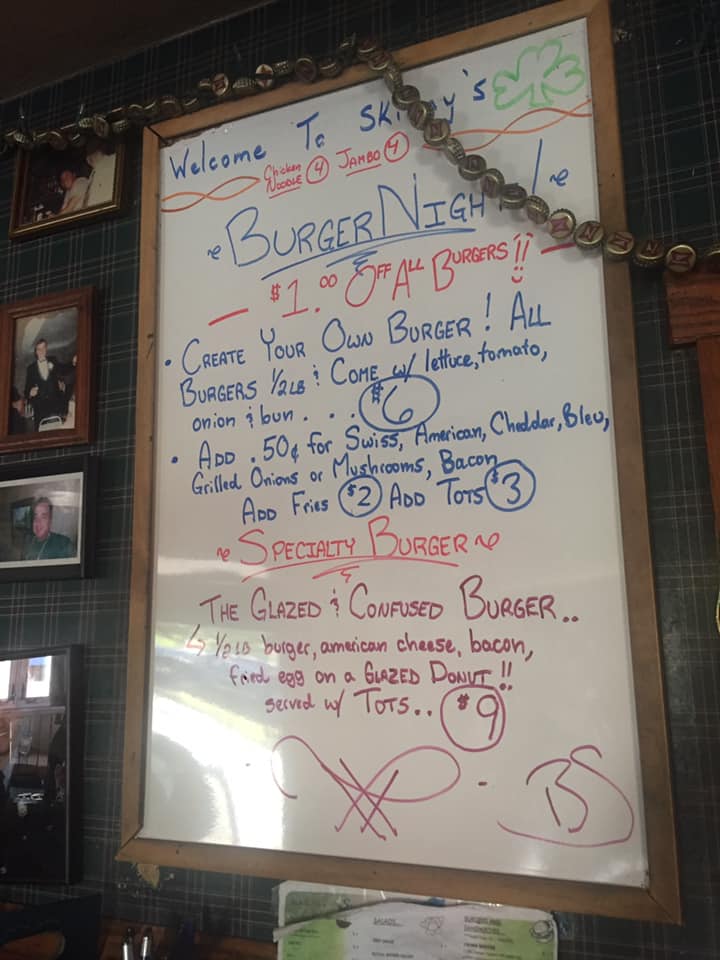 Welcome To
Chicken Noodle 4 Jambo 4
~ Burger Night ~
$1.00 Off All Burgers!!
• Create Your Own Burger! All
Burgers 1/2 LB & Come w/ lettuce, tomato,
onion & bun . . . $6
• Add .50¢ for Swiss, American, Cheddar, Bleu,
Grilled Onions or Mushrooms, Bacon
Add Fries $2 Add Tots $3
~ Specialty Burger ~
The Glazed & Confused Burger..
↳ 1/2 LB burger, american cheese, bacon,
fried egg on a Glazed Donut!!
served w/ Tots.. $9
BS
SALADS